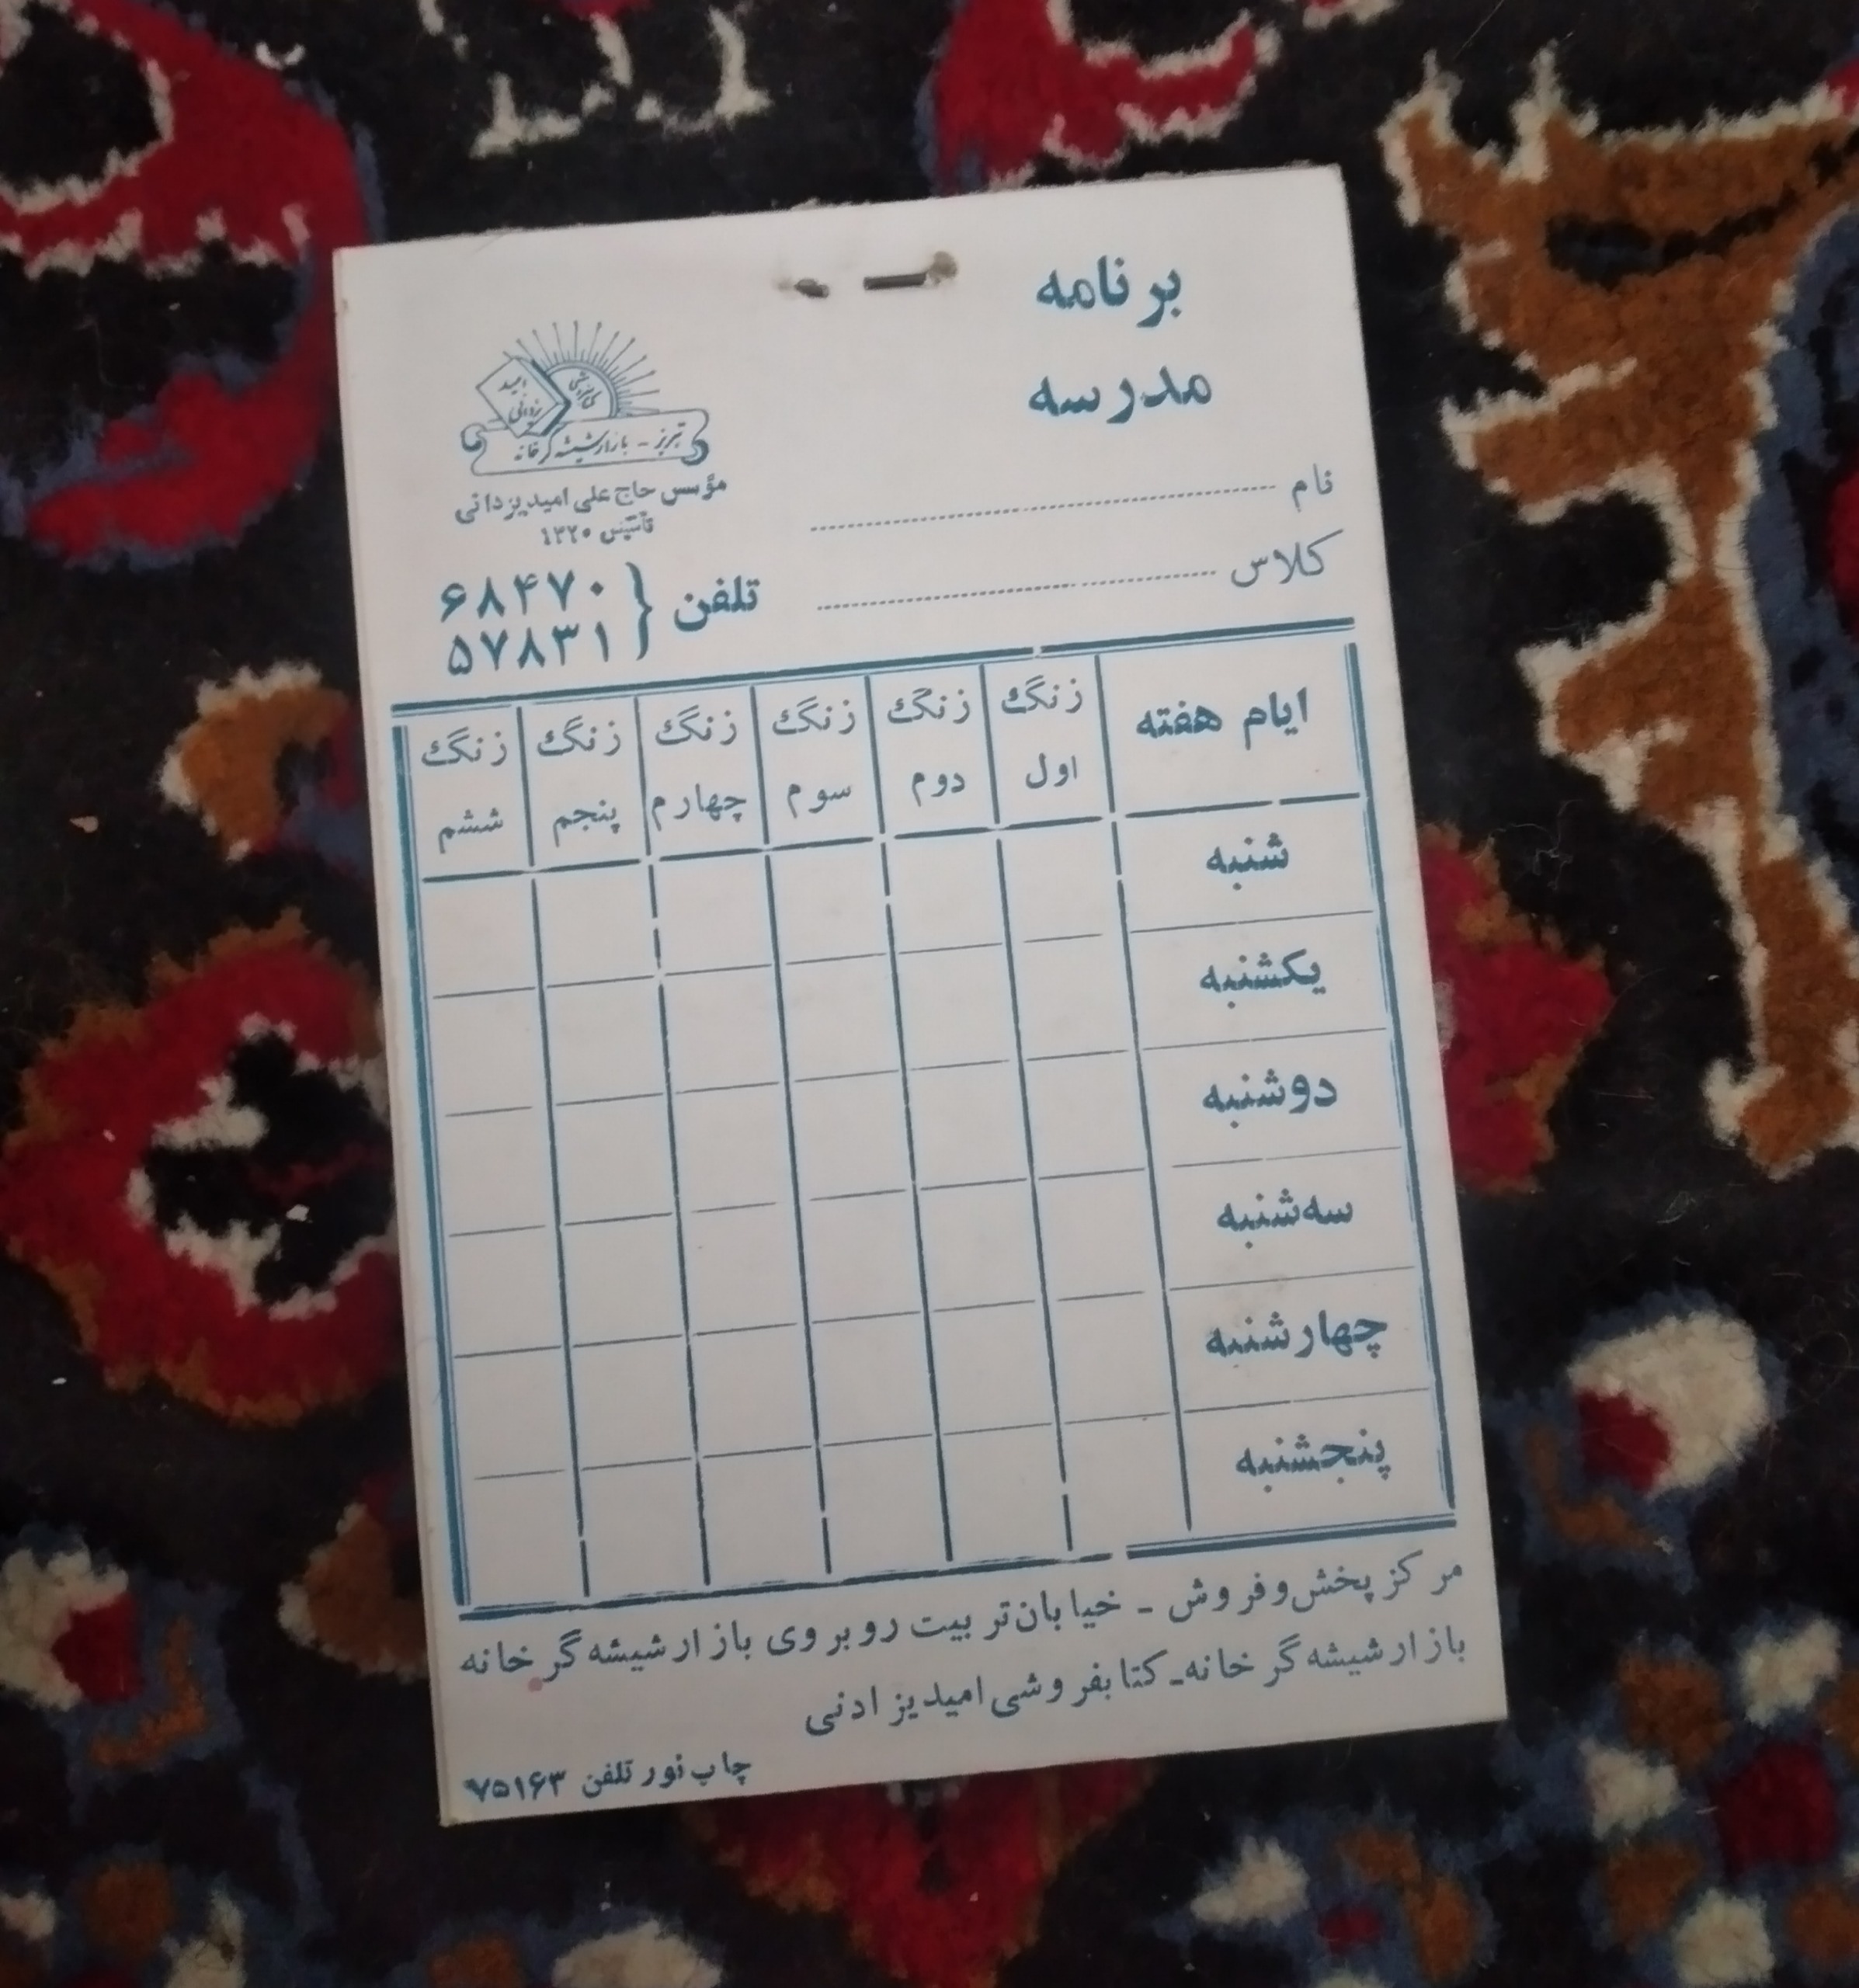 برنامه
مدرسه
کتابفروشی
امید
یزدانی
تبریز - بازار شیشه گرخانه
مؤسس حاج علی امیدیزدانی
تأسیس ۱۳۲۰
نام
کلاس
تلفن { ۶۸۴۷۰
۵۷۸۳۱
ایام هفته زنگ اول زنگ دوم زنگ سوم زنگ چهارم زنگ پنجم زنگ ششم
شنبه
یکشنبه
دوشنبه
سه‌شنبه
چهارشنبه
پنجشنبه
مرکز پخش و فروش - خیابان تربیت روبروی بازار شیشه گر خانه
بازار شیشه گر خانه - کتابفروشی امیدیزادنی
چاپ نور تلفن ۷۵۱۶۳